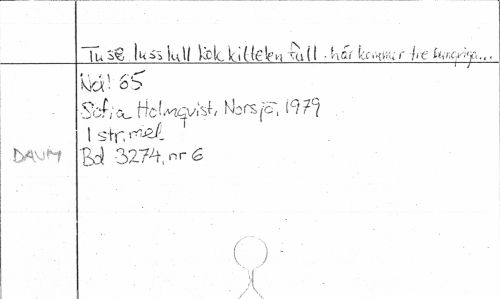 Tuse lusslull kok kittelen full. här kommer tre hungriga...
Nål 65
Sofia Holmqvist, Norsjö, 1979
1 str, mel.
DAUM Bd 3274, nr 6